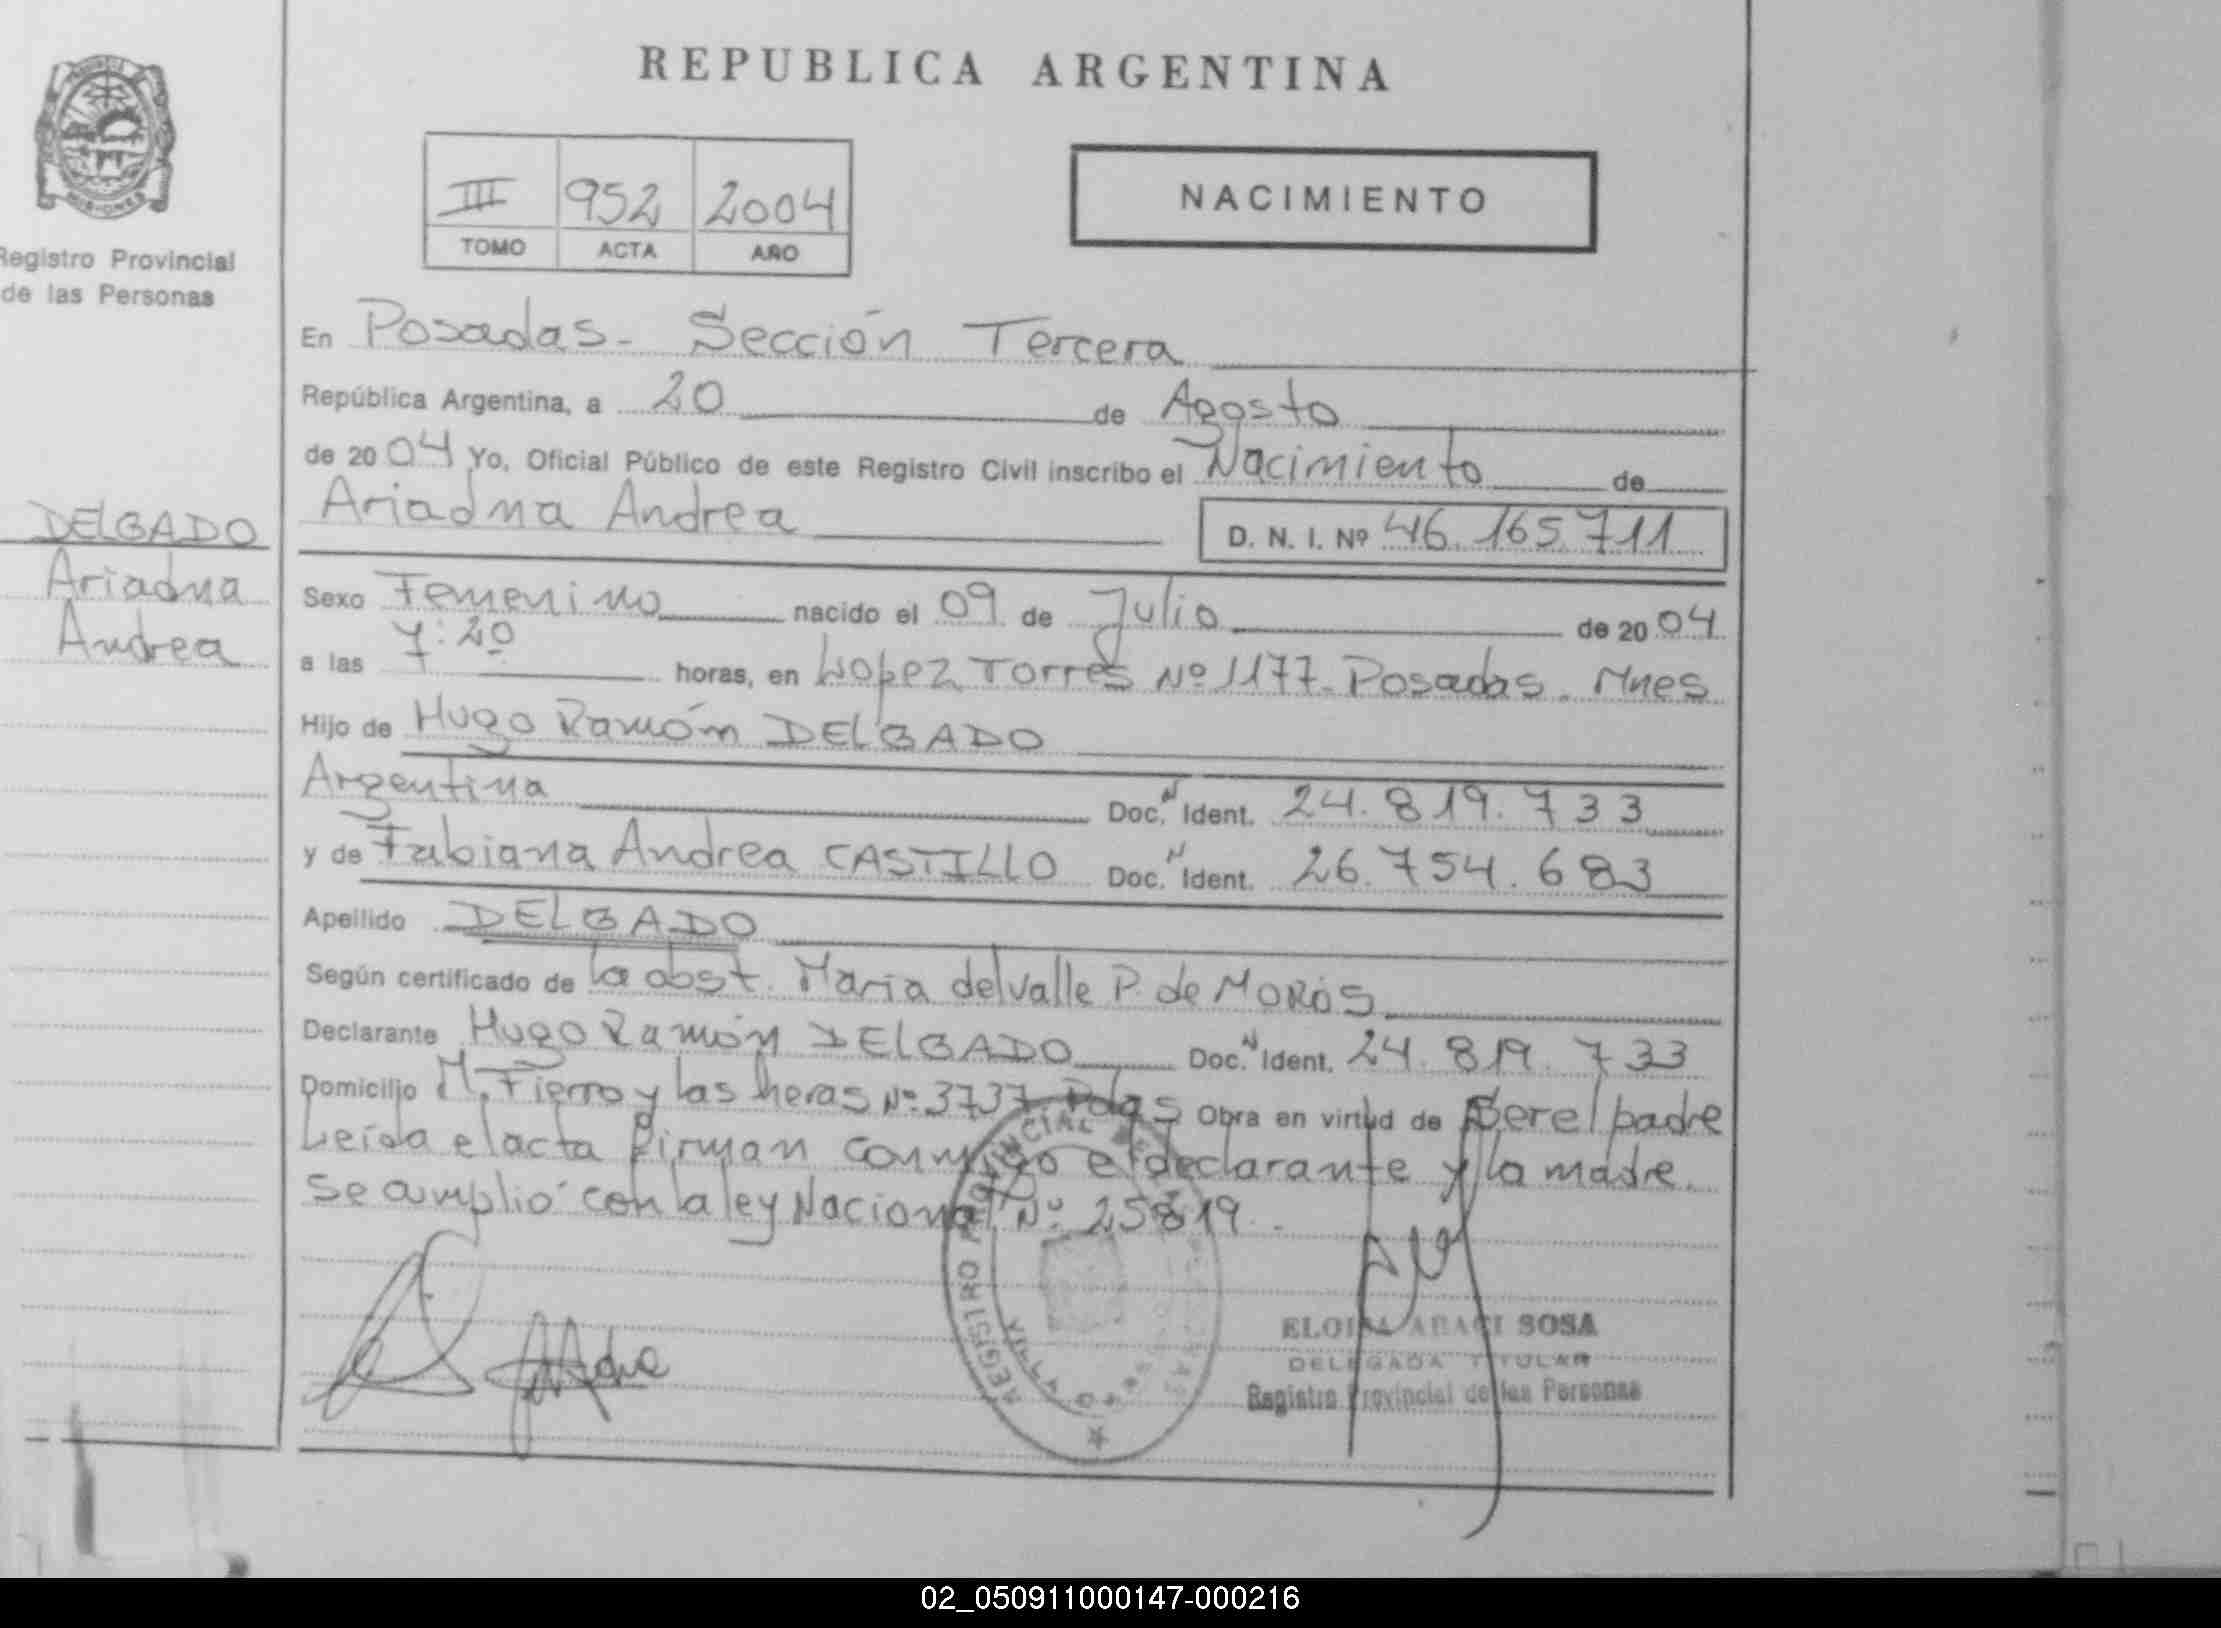 REPUBLICA ARGENTINA
III 952 2004
TOMO ACTA AÑO
NACIMIENTO
MISIONES
Registro Provincial
de las Personas
DELGADO
Ariadna
Andrea
En Posadas - Sección Tercera
República Argentina, a 20 de Agosto
de 20 04 Yo, Oficial Público de este Registro Civil inscribo el Nacimiento de
Ariadna Andrea D. N. I. Nº 46.165.711
Sexo Femenino nacido el 09 de Julio de 20 04
a las 7:20 horas, en Lopez Torres Nº 1177 - Posadas. Mnes
Hijo de Hugo Ramón DELGADO
Argentina Doc. N Ident. 24.819.733
y de Fabiana Andrea CASTILLO Doc. N Ident. 26.754.683
Apellido DELGADO
Según certificado de la obst. Maria del valle P. de MORÓS
Declarante Hugo Ramón DELGADO Doc. N Ident. 24.819.733
Domicilio M. Fierro y las heras Nº 3737 Pdas Obra en virtud de Ser el padre
Leída el acta firman conmigo el declarante y la madre.
Se amplió con la ley Nacional Nº 25819.
REGISTRO PROVINCIAL DE LAS
ELOISA ARACI SOSA
DELEGADA TITULAR
Registro Provincial de las Personas
02_050911000147-000216